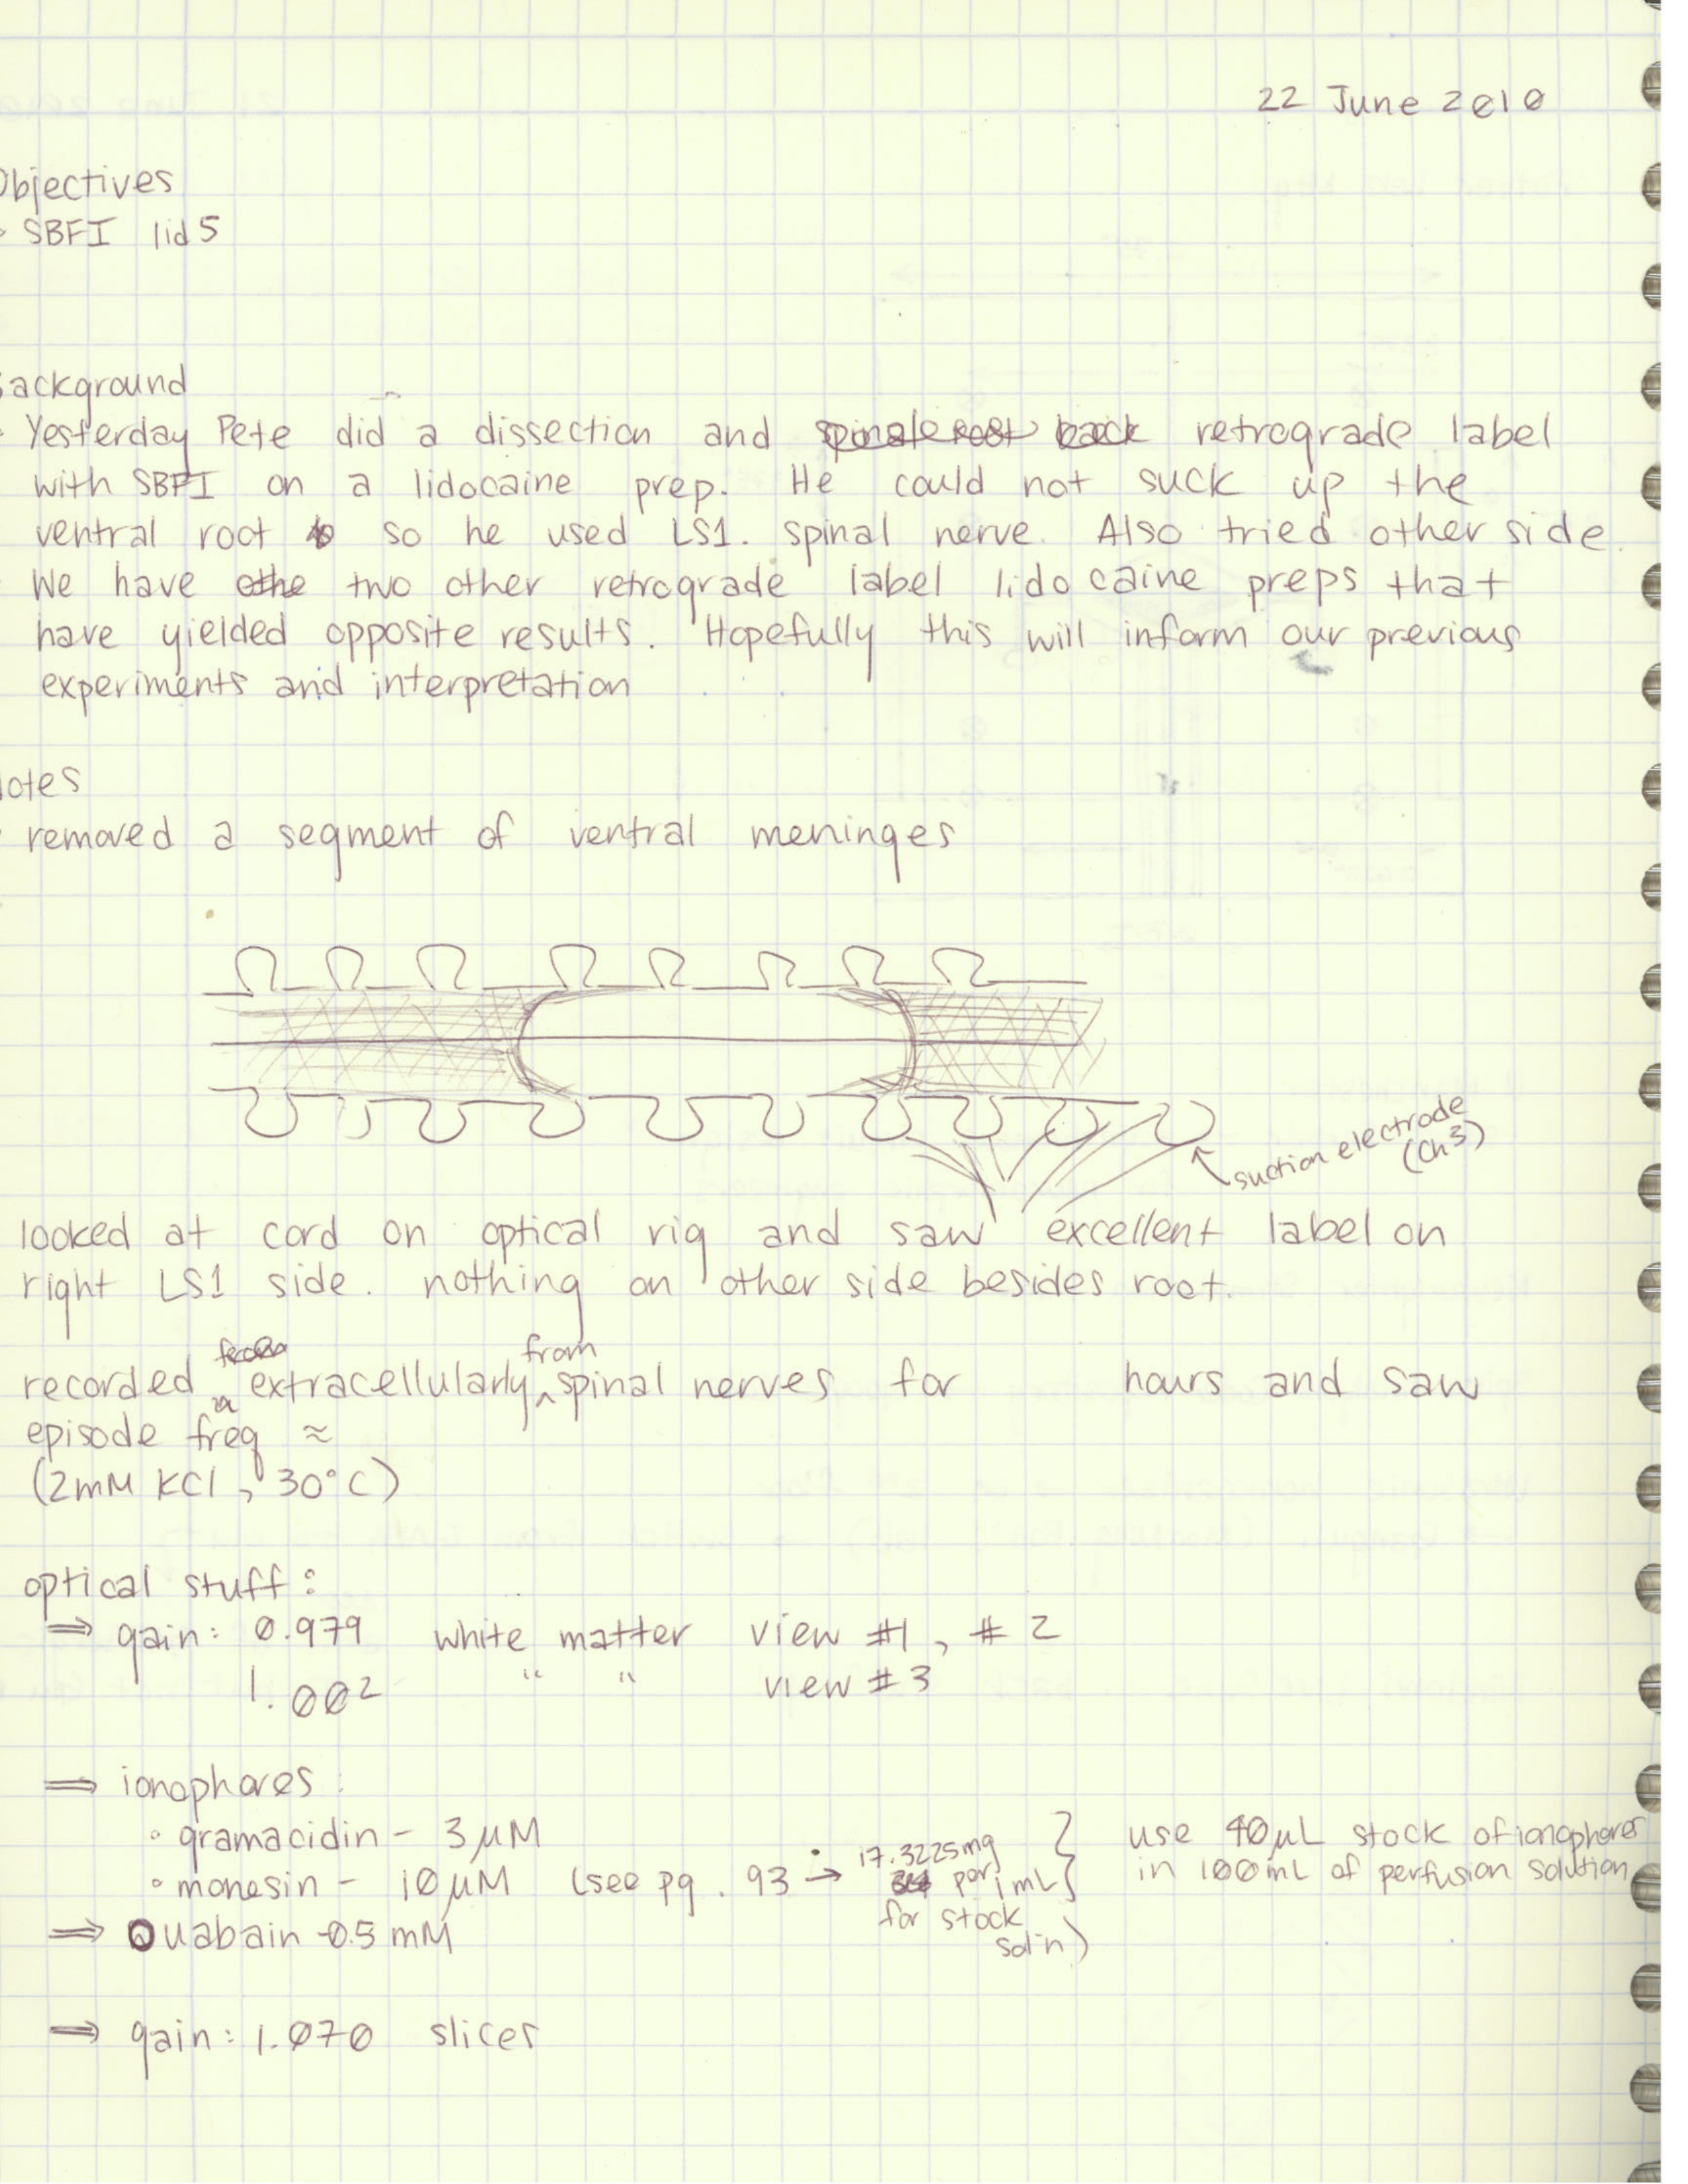 22 June 2010
Objectives
SBFI lid5
Background
Yesterday Pete did a dissection and retrograde label
with SBFI on a lidocaine prep. He could not suck up the
ventral root so he used LS1. spinal nerve. Also tried other side.
We have two other retrograde label lidocaine preps that
have yielded opposite results. Hopefully this will inform our previous
experiments and interpretation
Notes
removed a segment of ventral meninges
suction electrode
(Ch3)
looked at cord on optical rig and saw excellent label on
right LS1 side. nothing on other side besides root.
from
recorded extracellularly ^ spinal nerves for hours and saw
episode freq ≈
(2mM KCl, 30°C)
optical stuff:
⇒ gain: 0.979 white matter view #1, #2
1.002 " " view #3
⇒ ionophores:
° gramacidin - 3 μM
° monesin - 10 μM (see pg. 93 → 17.3225mg
per 1 mL
for stock
sol'n)
} use 40μL stock of ionophores
in 100mL of perfusion solution
⇒ Ouabain - 0.5 mM
⇒ gain: 1.070 slicer